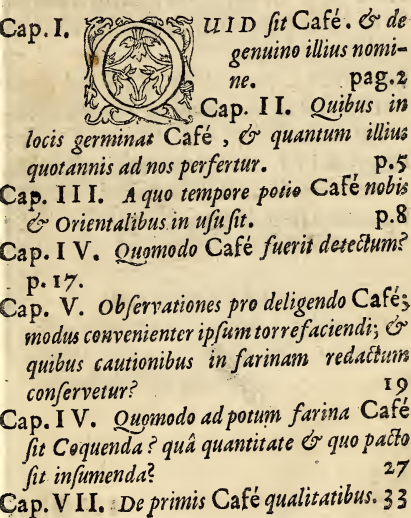 Cap. I. QUID ſit Café. & de
genuino illius nomi-
ne. pag.2
Cap. II. Quibus in
locis germinat Café, & quantum illius
quotannis ad nos perfertur. p.5
Cap. III. A quo tempore potio Café nobis
& Orientalibus in uſu ſit. p.8
Cap. IV. Quomodo Café fuerit detectum?
p. 17.
Cap. V. Obſervationes pro deligendo Café;
modus convenienter ipſum torrefaciendi; &
quibus cautionibus in farinam redactum
conſervetur? 19
Cap. IV. Quomodo ad potum farina Café
ſit Coquenda? quâ quantitate & quo pacto
ſit inſumenda? 27
Cap. VII. De primis Café qualitatibus. 33